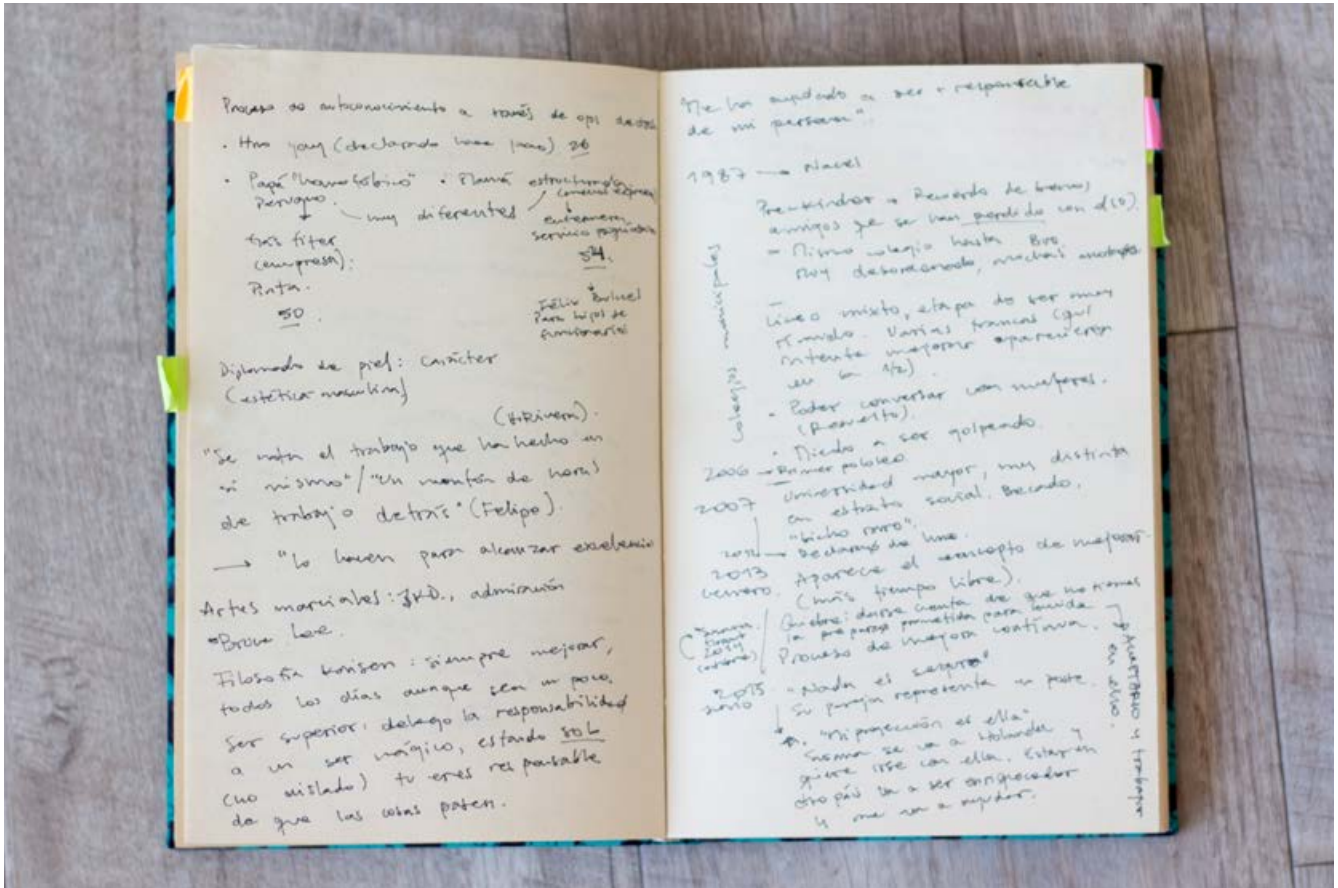 Proceso de autoconocimiento a través de
Papá "homofóbico" • Mamá estructurada
peruano.
muy diferentes
enfermera
servicio psiquiátrico
(empresa).
Pinta.
54.
50.
Félix Bulnes
para hijos de
funcionarios
Diplomado de piel: carácter
(estética masculina)
"Se nota el trabajo que ha hecho en
sí mismo"/"Un montón de horas
de trabajo detrás" (Felipe).
→ "Lo hacen para alcanzar excelencia
Artes marciales: JKD., admiración
Bruce Lee.
Filosofía : siempre mejorar,
todos los días aunque sea un poco.
Ser superior: delego la responsabilidad
a un ser mágico, estando sol
(no aislado) tu eres responsable
de que las cosas pasen.
Me ha ayudado a ser + responsable
de mi persona".
1987 → Nace
Prekinder → Recuerdo de buenos
amigos que se han perdido con el (t).
- Mismo colegio hasta 8vo
muy desordenado, muchas anotaciones
colegios municipales
Liceo mixto, etapa de ser muy
tímido. Varias trancas (quí
intenté mejorar apareciera
en la 1/2).
• Poder conversar con mujeres.
(Resuelto).
• Miedo a ser golpeado.
2006 → Primer pololeo.
2007 Universidad mayor, muy distinta
en estrato social. Becado,
"bicho raro".
2012 →
2013 Aparece el concepto de mejorar-
(más tiempo libre).
Quiebre: darse cuenta de que no tiene
la pareja prometida para la vida
Proceso de mejora continua.
2014
ACEPTARLO y trabajar
en ello.
2015 "Nada es seguro"
junio Su pareja representa un poste.
"Mi proyección es ella"
Susana se va a Holanda y
quiere irse con ella. Estar en
otro país va a ser enriquecedor
y me va a ayudar.